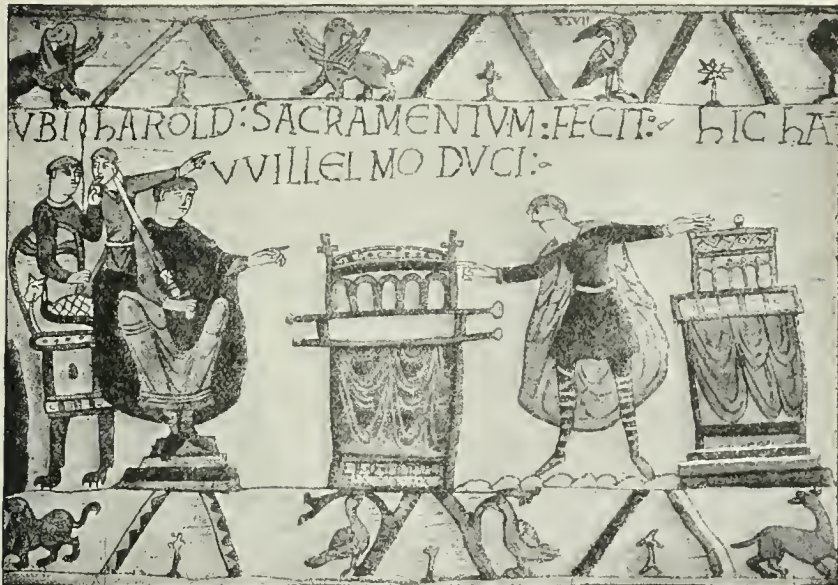 XXVII
VBI hAROLD : SACRAMENTVM : FECIT :~ hIC hA
VVILLELMO DVCI :~